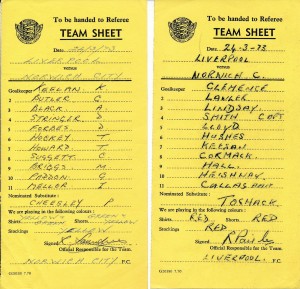 To be handed to Referee
TEAM SHEET
Date 24/3/73
LIVERPOOL
versus
NORWICH CITY
Goalkeeper KEELAN K
2 BUTLER G
3 BLACK A
4 STRINGER D
5 FORBES D
6 HOCKEY T
7 HOWARD T
8 SUGGETT C
9 BRIGGS M
10 PADDON G
11 MELLOR I
Nominated Substitute :
CHEESLEY P
We are playing in the following colours :
Shirts Shorts
Stockings YELLOW
Signed
Official Responsible for the Team.
NORWICH CITY F.C.
To be handed to Referee
TEAM SHEET
Date 24-3-73
LIVERPOOL
versus
NORWICH C.
Goalkeeper CLEMENCE
2 LAWLER
3 LINDSAY
4 SMITH CAPT
5 LLOYD
6 HUGHES
7 KEEGAN
8 CORMACK
9 HALL
10 HEIGHWAY
11 CALLAGHAN
Nominated Substitute :
TOSHACK
We are playing in the following colours :
Shirts RED Shorts RED
Stockings RED
Signed R Paisley
Official Responsible for the Team.
LIVERPOOL F.C.